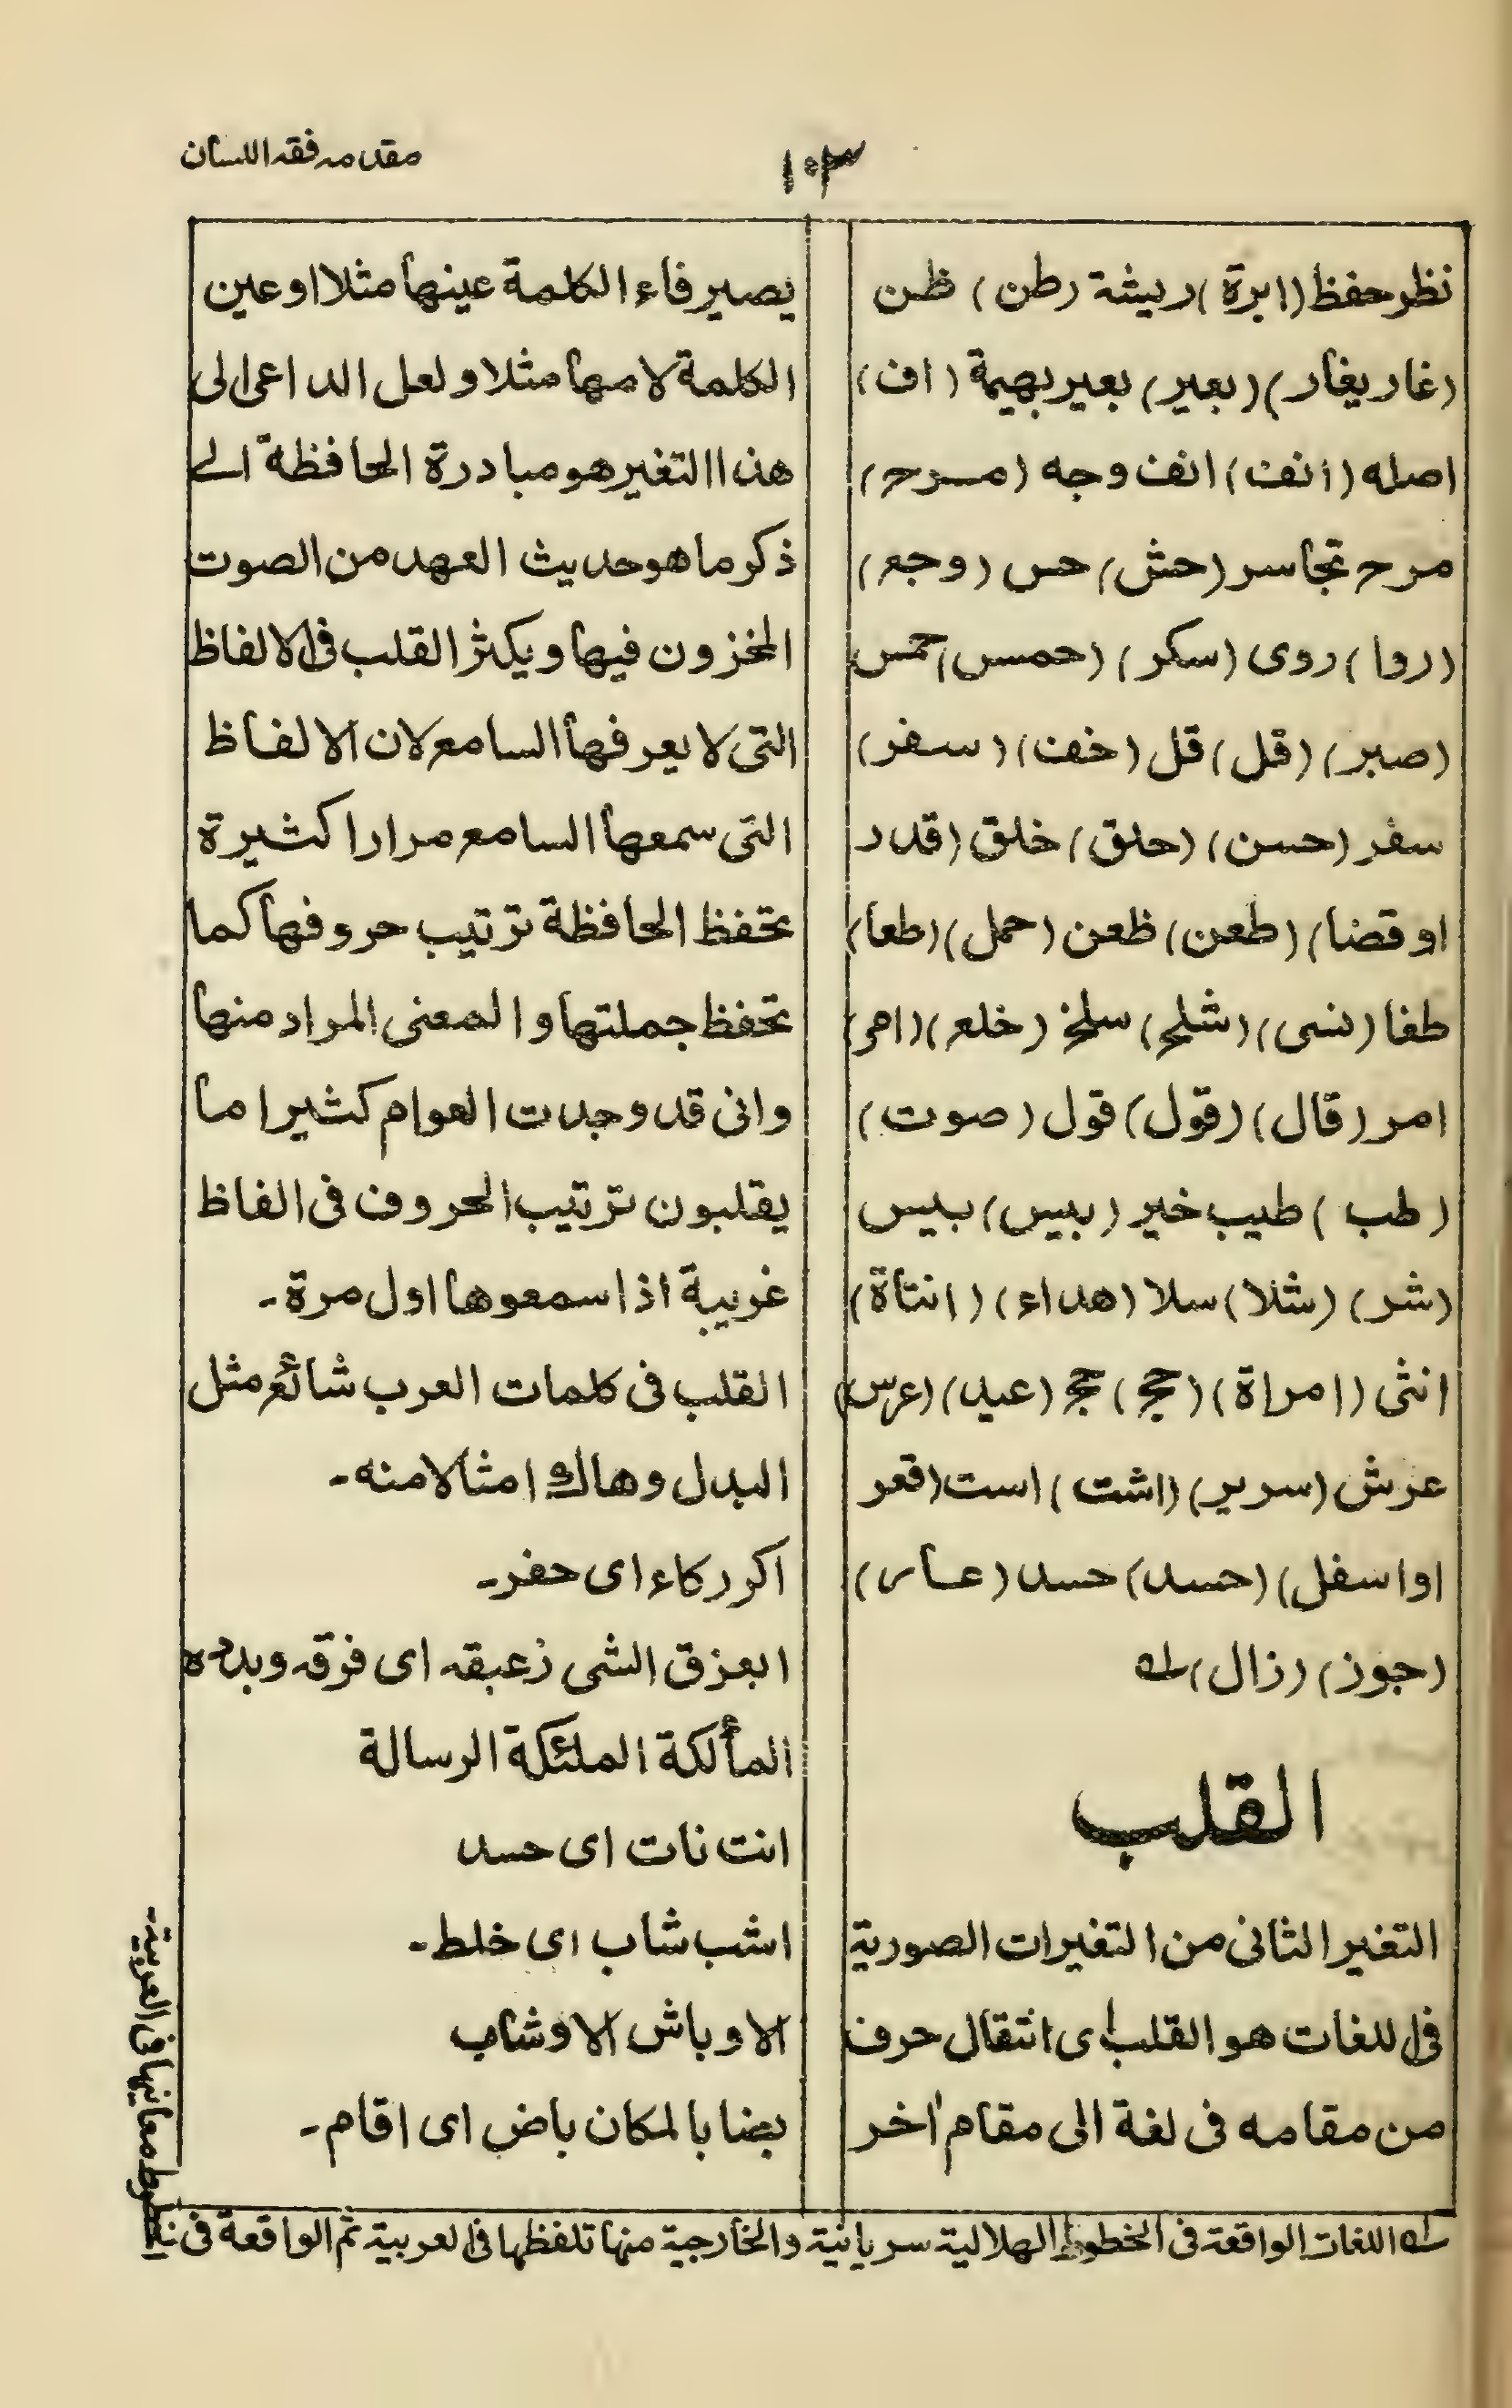 مقدمہ فقہ اللسان
۱۰۳
نظر حفظ (ابرة) ریشة (طن) ظن
(غار یغار) (بعیر) بعیر بهیمة (اف)
اصله (انف) انف وجه (مرح)
مرح تجاسر (حش) حس (وجع)
(روا) روی (سکر) (حمس) حمس
(صبر) (قل) قل (خف) (سفر)
سفر (حسن) (حلق) خلق (قدر
او قضا) (طعن) ظعن (حمل) (طعا)
طغا (نسی) (شلح) سلخ (خلع) (امر)
امر (قال) (قول) قول (صوت)
(طب) طیب خیر (بیس) بیس
(شر) (شلا) سلا (هداء) (انتاة)
انثی (امراة) (حج) حج (عید) (عرس)
عرش (سریر) (اشت) است (قعر
او اسفل) (حسد) حسد (عار)
(جوز) (زال) لہ
القلب
التغیر الثانی من التغیرات الصوریة
فی اللغات هو القلب ای انتقال حرف
من مقامه فی لغة الی مقام اٰخر
یصیر فاء الکلمة عینها مثلا او عین
الکلمة لامها مثلا ولعل الداعی الی
هذا التغیر هو مبادرة الحافظة الے
ذکر ما هو حدیث العهد من الصوت
المخزون فیها ویکثر القلب فی الالفاظ
التی لا یعرفها السامع لان الالفاظ
التی سمعها السامع مرارا کثیرة
تحفظ الحافظة ترتیب حروفها کما
تحفظ جملتها والمعنی المراد منها
وانی قد وجدت العوام کثیرا ما
یقلبون ترتیب الحروف فی الفاظ
غریبة اذا سمعوها اول مرة ـ
القلب فی کلمات العرب شائع مثل
البدل وهاك امثالا منه ـ
اکر رکاء ای حفر ـ
ابعزق الشی زعبقه ای فرقه وبدده
المألکة الملئکة الرسالة
انت نات ای حسد
اشب شاب ای خلط ـ
الاوباش الاوشاب
بضا بالمکان باض ای اقام ـ
لہ اللغات الواقعة فی الخطوط الهلالیة سریانیة والخارجیة منها تلفظها فی العربیة ثم الواقعة فی
خطوط معانیها فی العربیة ـ